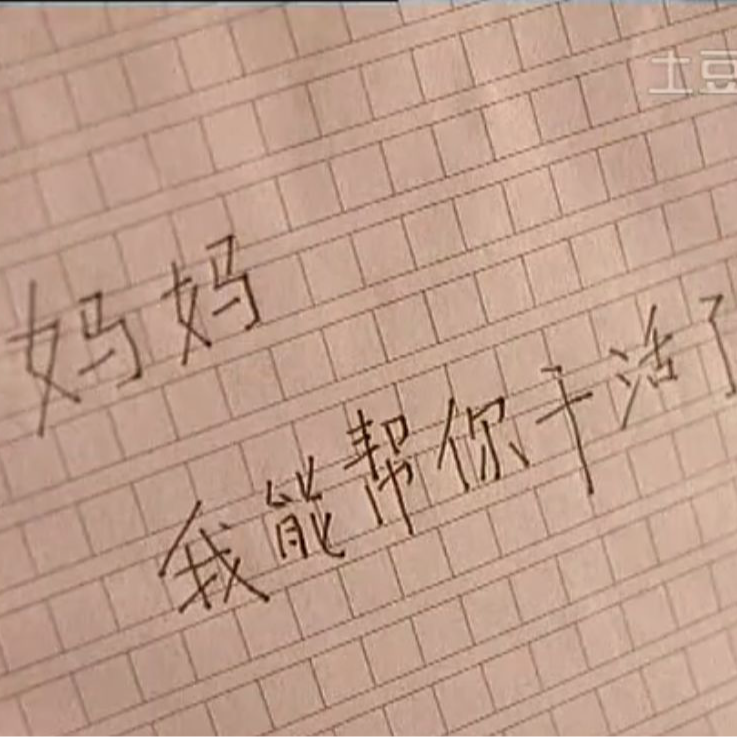 土豆
妈妈
我能帮你干活了